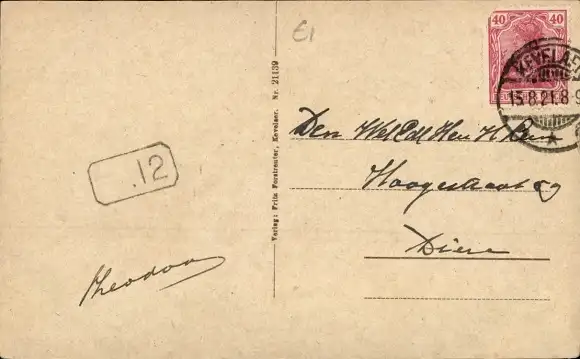 E1
40 40
KEVELAER
15.8.21. 8-9
Den Wel.Edl. Heer H.
Hoogestraat
Dieren
.12
Theodoor
Verlag: Fritz Forstreuter, Kevelaer. Nr. 21139